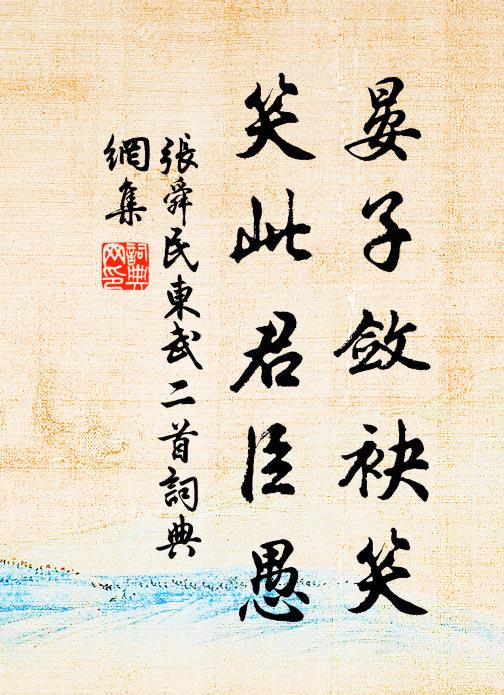 晏子斂袂笑
笑此君臣愚
張舜民東武二首詞典
網集
詞典
网印